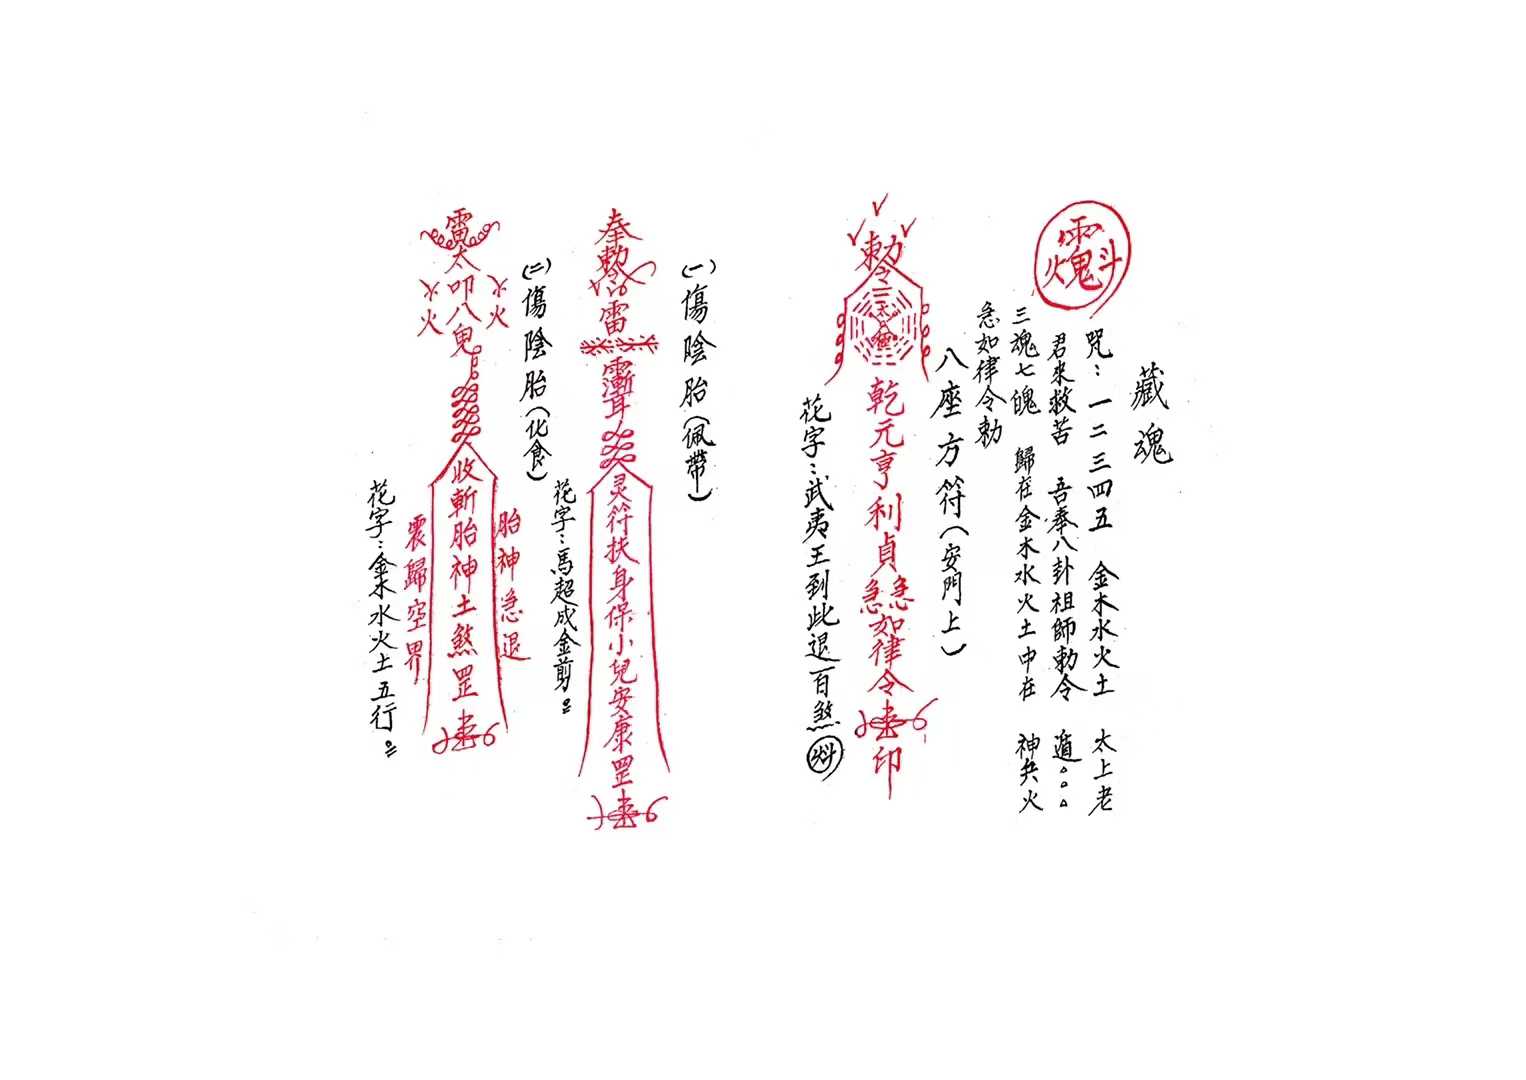 藏魂
咒：一二三四五 金木水火土 太上老
君來救苦 吾奉八卦祖師勅令 遁
三魂七魄 歸在金木水火土中在 神兵火
急如律令勅
八座方符(安門上)
勅令
乾元亨利貞急急如律令
印
花字：武夷王到此退百煞
(一)傷陰胎(佩帶)
奉勅令
雷
灵符扶身保小兒安康罡
花字：馬超成金剪
(二)傷陰胎(化食)
太
叩八
火 火
收斬胎神土煞罡
胎神急退
震歸空界
花字：金木水火土五行